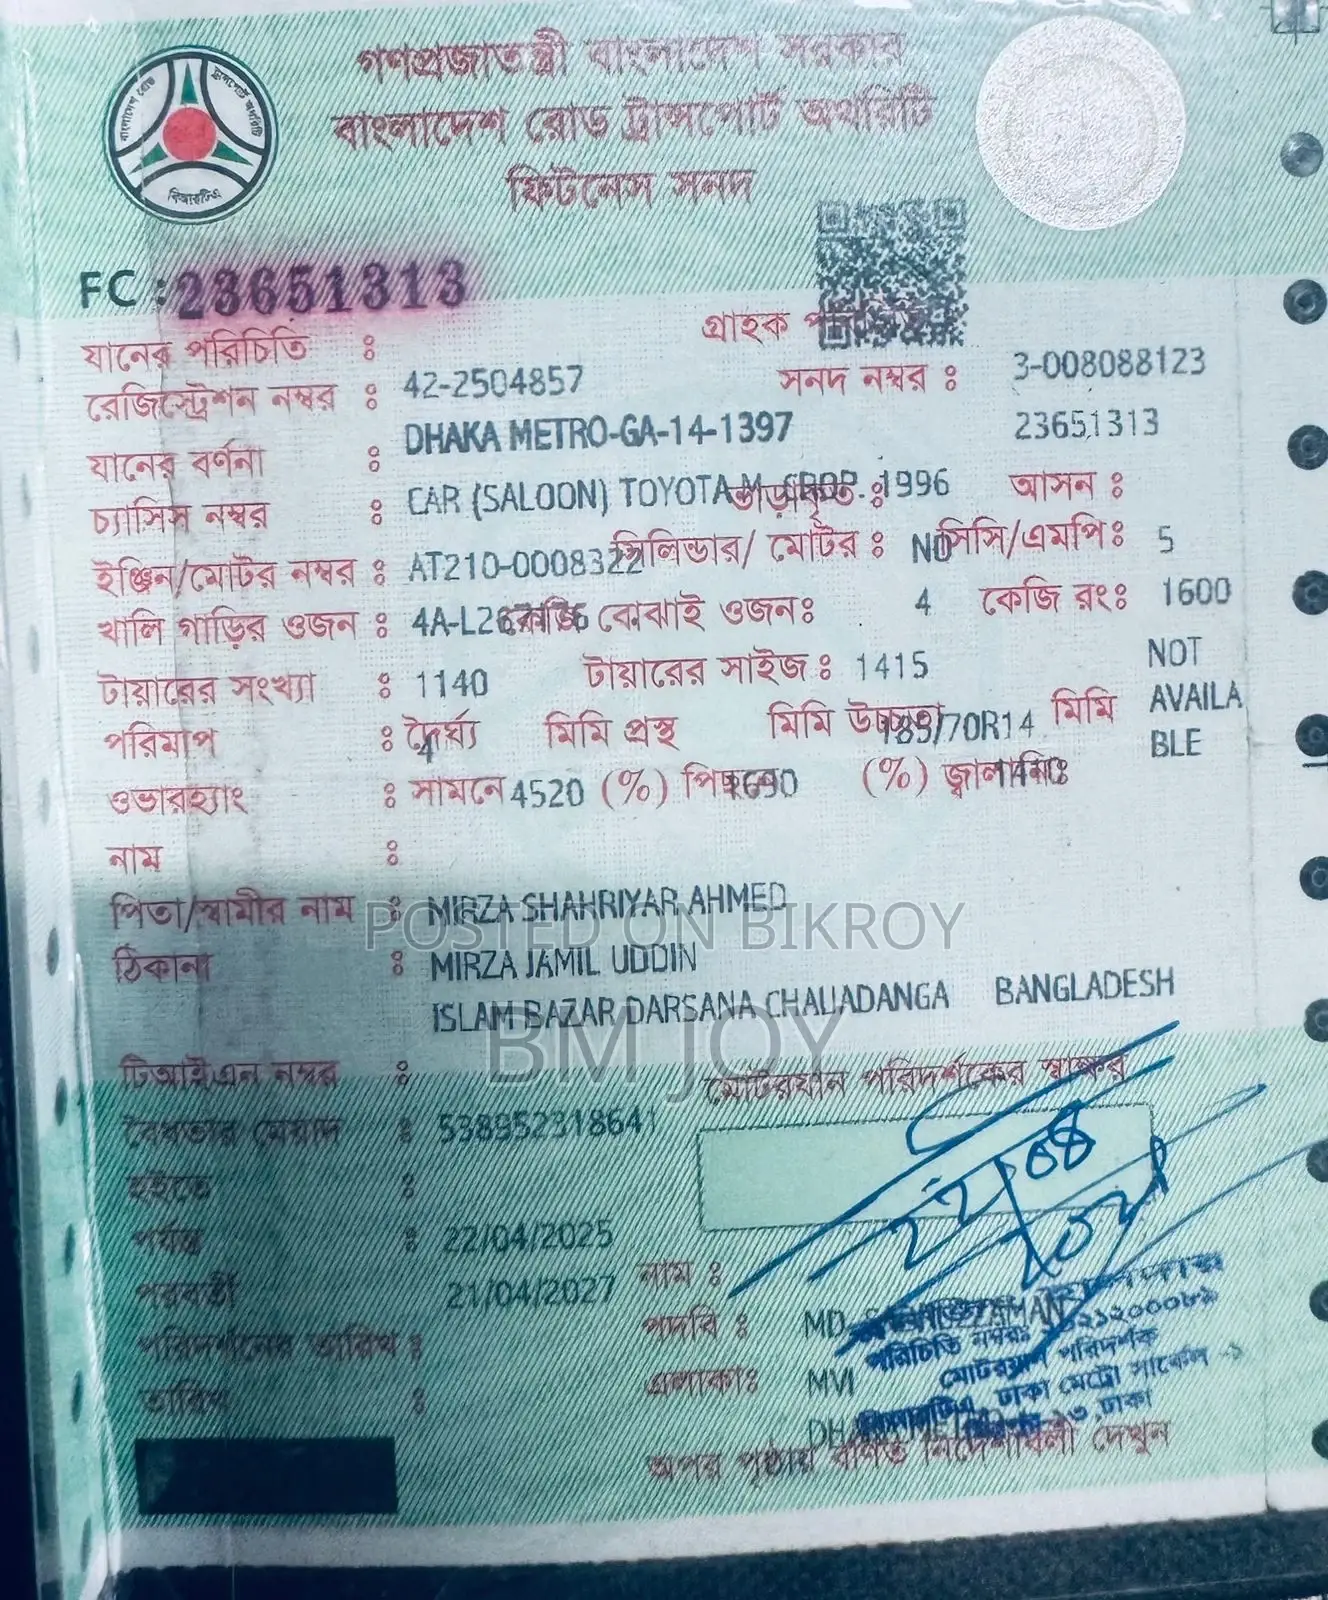 গণপ্রজাতন্ত্রী বাংলাদেশ সরকার
বাংলাদেশ রোড ট্রান্সপোর্ট অথরিটি
ফিটনেস সনদ
বাংলাদেশ রোড ট্রান্সপোর্ট অথরিটি
বিআরটিএ
FC : 23651313
যানের পরিচিতি : গ্রাহক
রেজিস্ট্রেশন নম্বর : 42-2504857 সনদ নম্বর : 3-008088123
যানের বর্ণনা : DHAKA METRO-GA-14-1397 23651313
চ্যাসিস নম্বর : CAR (SALOON) TOYOTA 1996 আসন :
ইঞ্জিন/মোটর নম্বর : AT210-0008322 সিলিন্ডার/ মোটর : NO সিসি/এমপি: 5
খালি গাড়ির ওজন : 4A-L267176 কেজি বোঝাই ওজন: 4 কেজি রং: 1600
টায়ারের সংখ্যা : 1140 টায়ারের সাইজ : 1415 NOT AVAILA BLE
পরিমাপ : দৈর্ঘ্য 4 মিমি প্রস্থ মিমি উচ্চতা 185/70R14 মিমি
ওভারহ্যাং : সামনে 4520 (%) পিছনে 1690 (%) জ্বালানি:
নাম :
পিতা/স্বামীর নাম : MIRZA SHAHRIYAR AHMED
POSTED ON BIKROY
ঠিকানা : MIRZA JAMIL UDDIN
ISLAM BAZAR DARSANA CHAUADANGA BANGLADESH
BM JOY
টিআইএন নম্বর : মোটরযান পরিদর্শকের স্বাক্ষর
বৈধতার মেয়াদ : 538952318641
হইতে :
পর্যন্ত : 22/04/2025
পরবর্তী 21/04/2027 নাম :
পরিদর্শনের তারিখ : পদবি : MD
পরিচিতি নম্বর:
তারিখ : এলাকা: MVI মোটরযান পরিদর্শক
ঢাকা মেট্রো সার্কেল -১
ঢাকা
অপর পৃষ্ঠায় বর্ণিত নির্দেশাবলী দেখুন